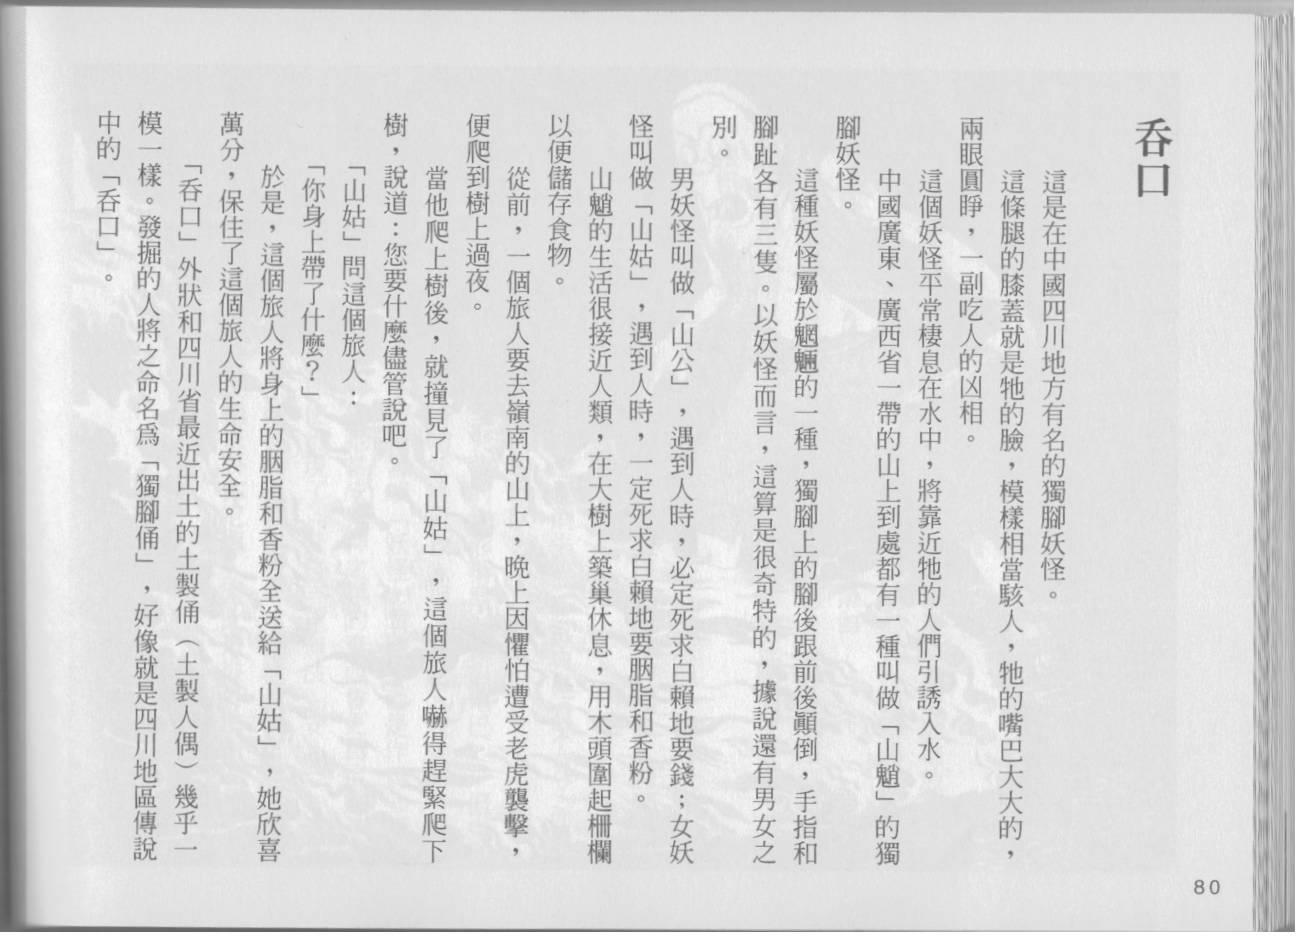 吞口
這是在中國四川地方有名的獨腳妖怪。
這條腿的膝蓋就是牠的臉，模樣相當駭人，牠的嘴巴大大的，
兩眼圓睜，一副吃人的凶相。
這個妖怪平常棲息在水中，將靠近牠的人們引誘入水。
中國廣東、廣西省一帶的山上到處都有一種叫做「山魈」的獨
腳妖怪。
這種妖怪屬於魍魎的一種，獨腳上的腳後跟前後顚倒，手指和
腳趾各有三隻。以妖怪而言，這算是很奇特的，據說還有男女之
別。
男妖怪叫做「山公」，遇到人時，必定死求白賴地要錢；女妖
怪叫做「山姑」，遇到人時，一定死求白賴地要胭脂和香粉。
山魈的生活很接近人類，在大樹上築巢休息，用木頭圍起柵欄
以便儲存食物。
從前，一個旅人要去嶺南的山上，晚上因懼怕遭受老虎襲擊，
便爬到樹上過夜。
當他爬上樹後，就撞見了「山姑」，這個旅人嚇得趕緊爬下
樹，說道：您要什麼儘管說吧。
「山姑」問這個旅人：
「你身上帶了什麼？」
於是，這個旅人將身上的胭脂和香粉全送給「山姑」，她欣喜
萬分，保住了這個旅人的生命安全。
「呑口」外狀和四川省最近出土的土製俑（土製人偶）幾乎一
模一樣。發掘的人將之命名爲「獨腳俑」，好像就是四川地區傳說
中的「呑口」。
80